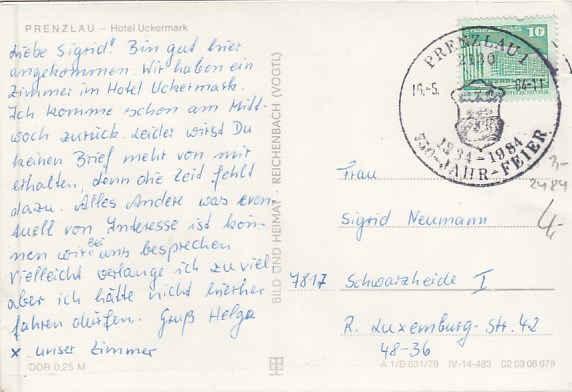 PRENZLAU – Hotel Uckermark
Liebe Sigrid! Bin gut hier
angekommen. Wir haben ein
Zimmer im Hotel Uckermark.
Ich komme schon am Mitt-
woch zurück. Leider wirst Du
keinen Brief mehr von mir
erhalten, denn die Zeit fehlt
dazu. Alles Andere was even-
tuell von Interesse ist kön-
nen wir bei uns besprechen
Vielleicht verlange ich zuviel
aber ich hätte nicht hierher
fahren dürfen. Gruß Helga
x unser Zimmer
DDR 0,25 M
BILD UND HEIMAT · REICHENBACH (VOGTL)
10
PRENZLAU 1
2130
16.-5. 84-11
1234-1984
750-JAHR-FEIER
3,-
2484
4,-
Frau
Sigrid Neumann
7817 Schwarzheide I
R. Luxemburg-Str. 42
48-36
A 1/B 631/78 IV-14-483 02 03 08 079